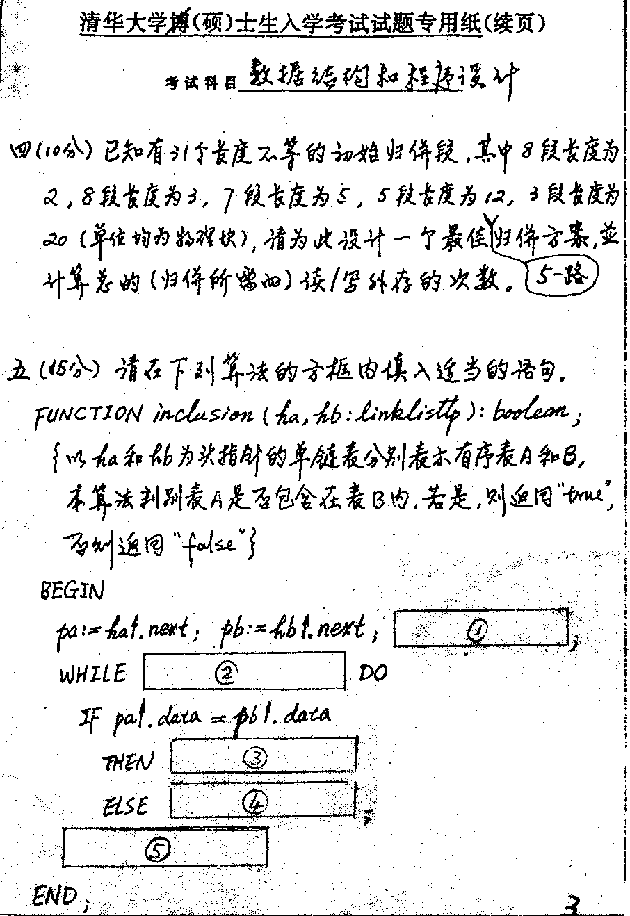 清华大学博(硕)士生入学考试试题专用纸(续页)
考试科目 数据结构和程序设计
四(10分) 已知有31个长度不等的初始归併段,其中8段长度为
2,8段长度为3,7段长度为5,5段长度为12,3段长度为
20(单位均为物理块),请为此设计一个最佳5-路归併方案,並
计算总的(归併所需的)读/写外存的次数。
五(15分) 请在下列算法的方框内填入适当的语句。
FUNCTION inclusion(ha,hb:linklisttp):boolean;
{以ha和hb为头指针的单链表分别表示有序表A和B,
本算法判别表A是否包含在表B内,若是,则返回"true",
否则返回"false"}
BEGIN
pa:=ha↑.next; pb:=hb↑.next; ① ;
WHILE ② DO
IF pa↑.data = pb↑.data
THEN ③
ELSE ④ ;
⑤
END;
3